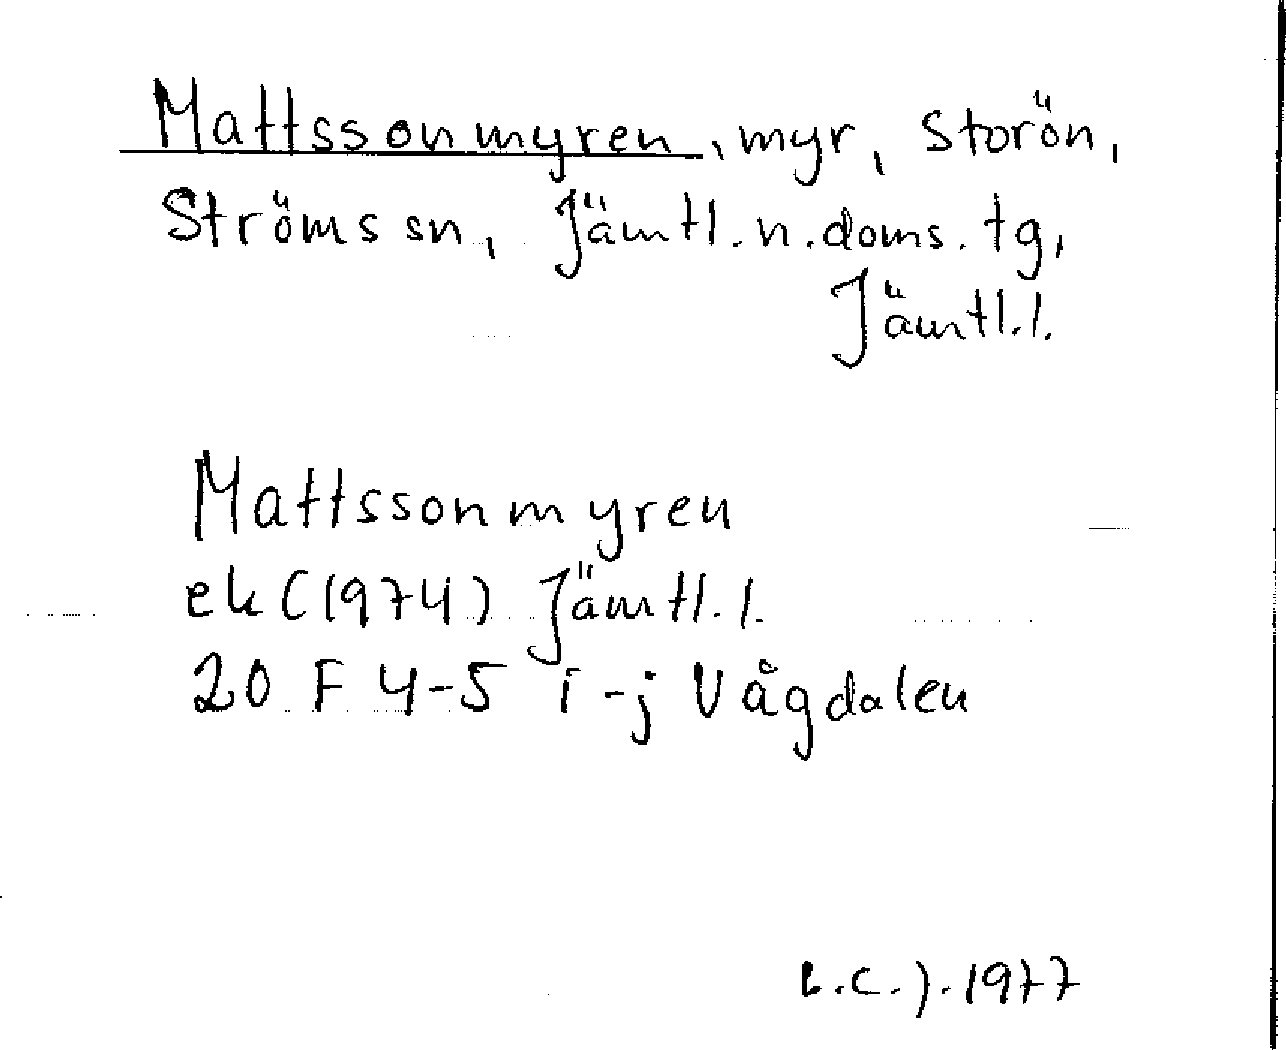 Mattssonmyren, myr, Storön,
Ströms sn, Jämtl.n.doms.tg,
Jämtl.l.
Mattssonmyren
ek (1974) Jämtl.l.
20 F 4-5 i-j Vågdalen
1977